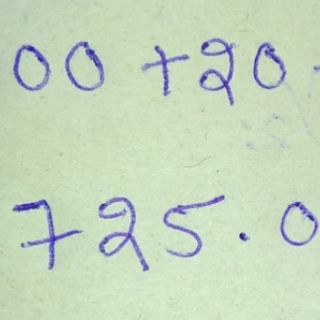 00 + 20
725.0